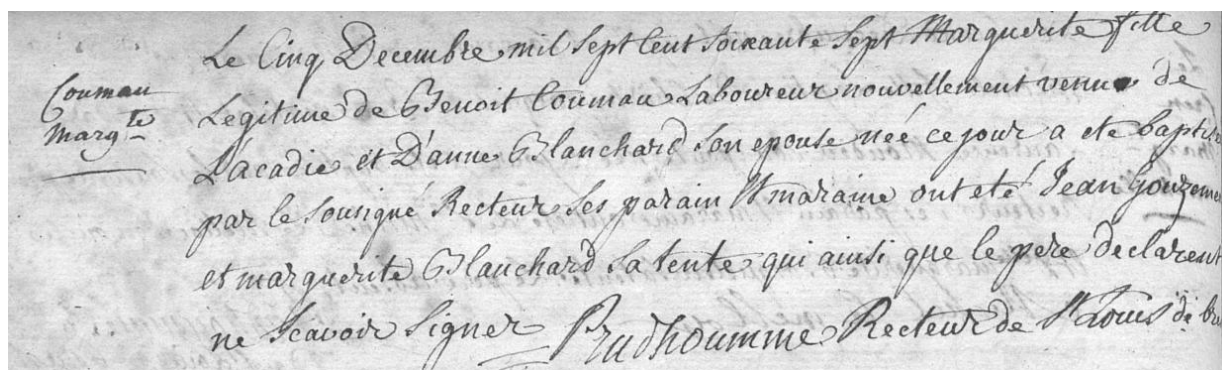 Le Cinq Decembre mil Sept Cent Soixante Sept Marguerite fille
Couman
Marg.te
Legitime de Benoit Couman Laboureur nouvellement venu de
L'acadie et D'anne Blanchard Son epouse née ce jour a eté baptisé
par le Sousigné Recteur Ses parain et maraine ont eté Jean
et marguerite Blanchard Sa tente qui ainsi que le pere declarent
ne Scavoir Signer Prudhoumme Recteur de St Louis de